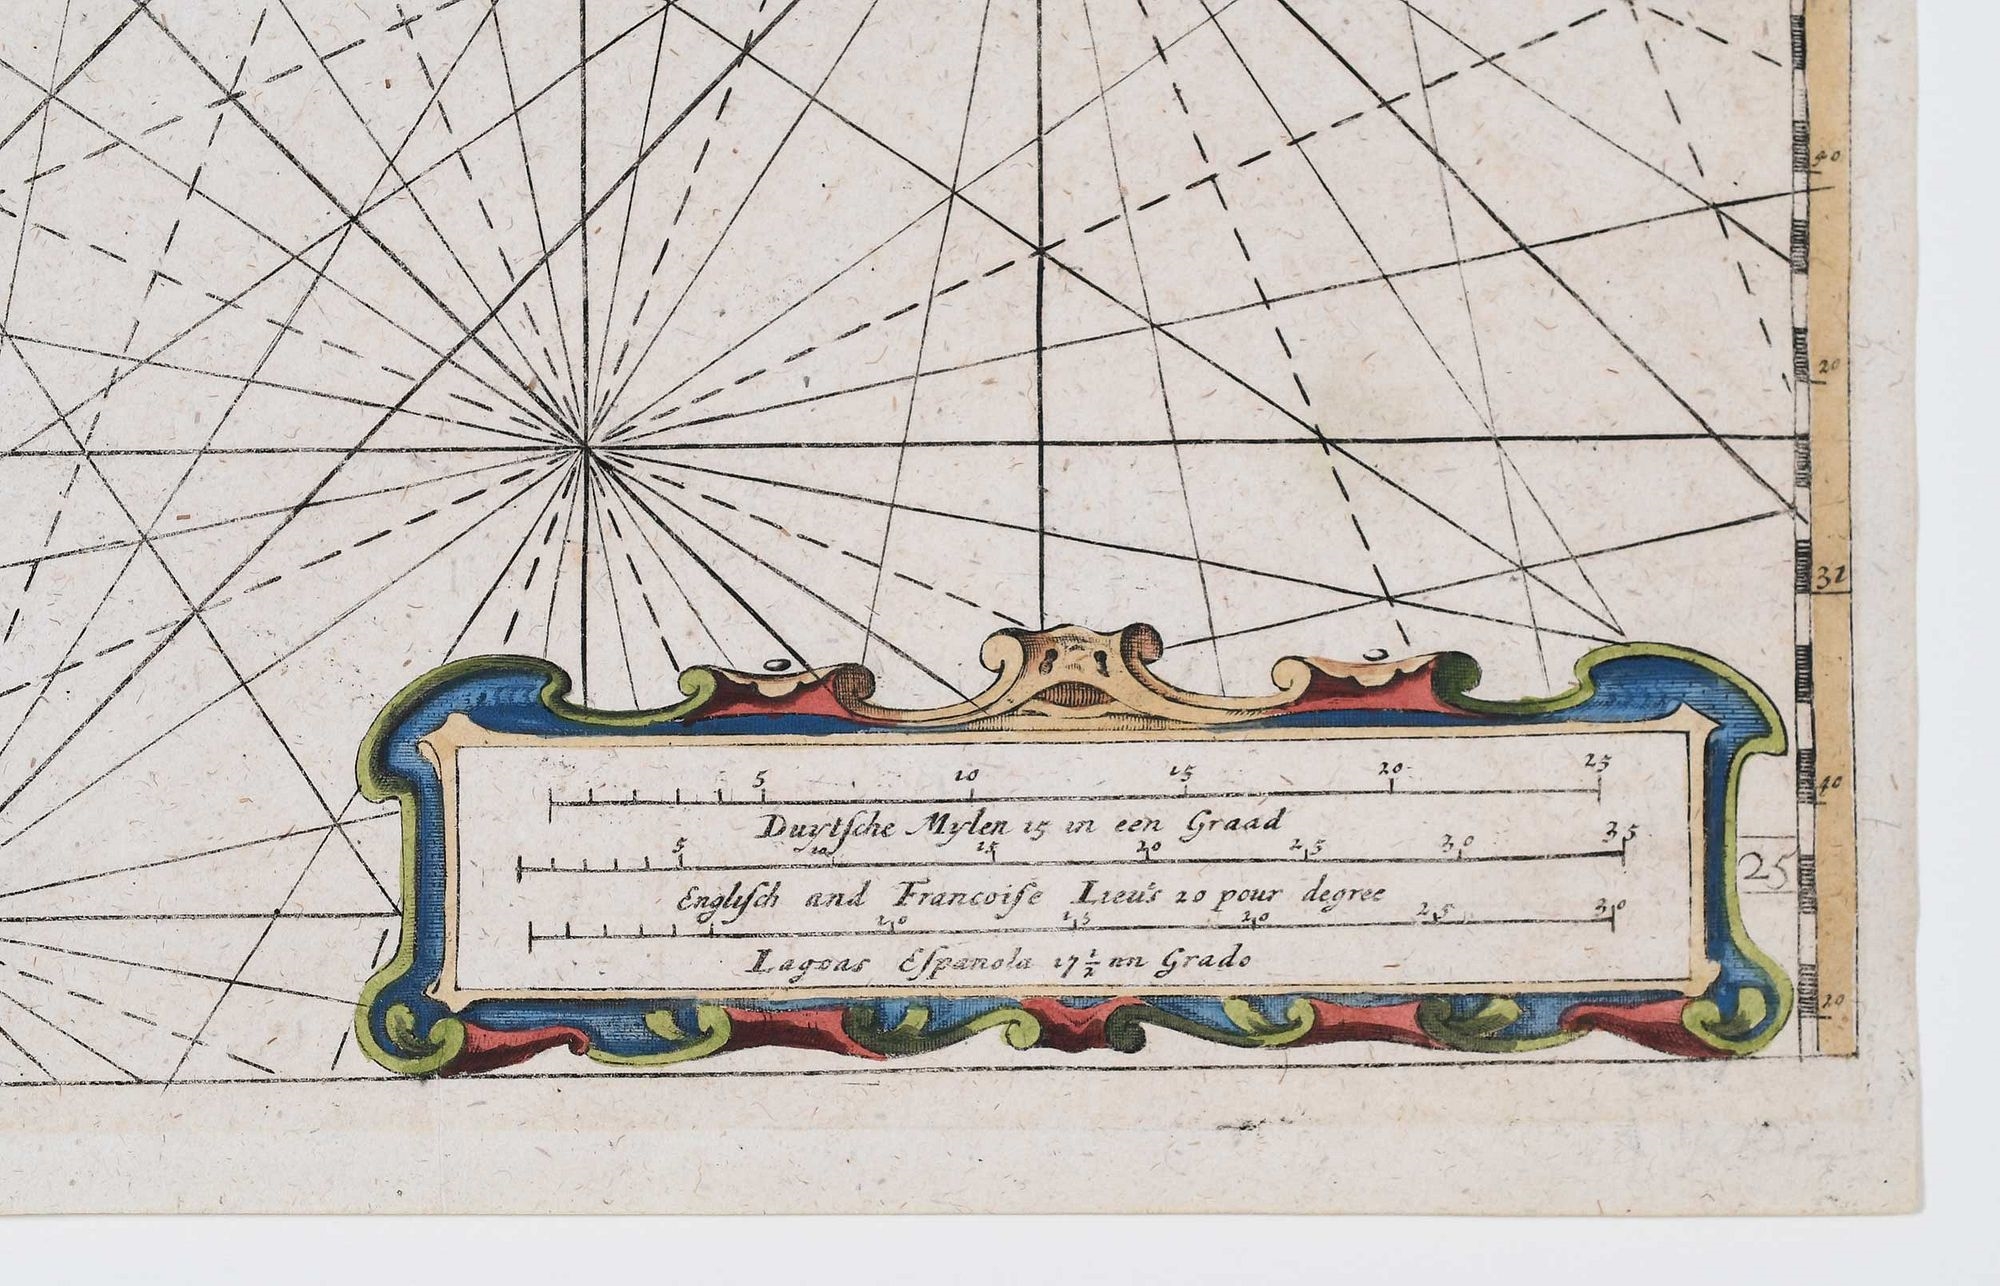 40
20
32
40
20
25
5 10 15 20 25
Duytsche Mylen 15 in een Graad
5 10 15 20 25 30 35
Englisch and Francoise Lieu's 20 pour degree
10 15 20 25 30
Lagoas Espanola 17 1/2 nn Grado